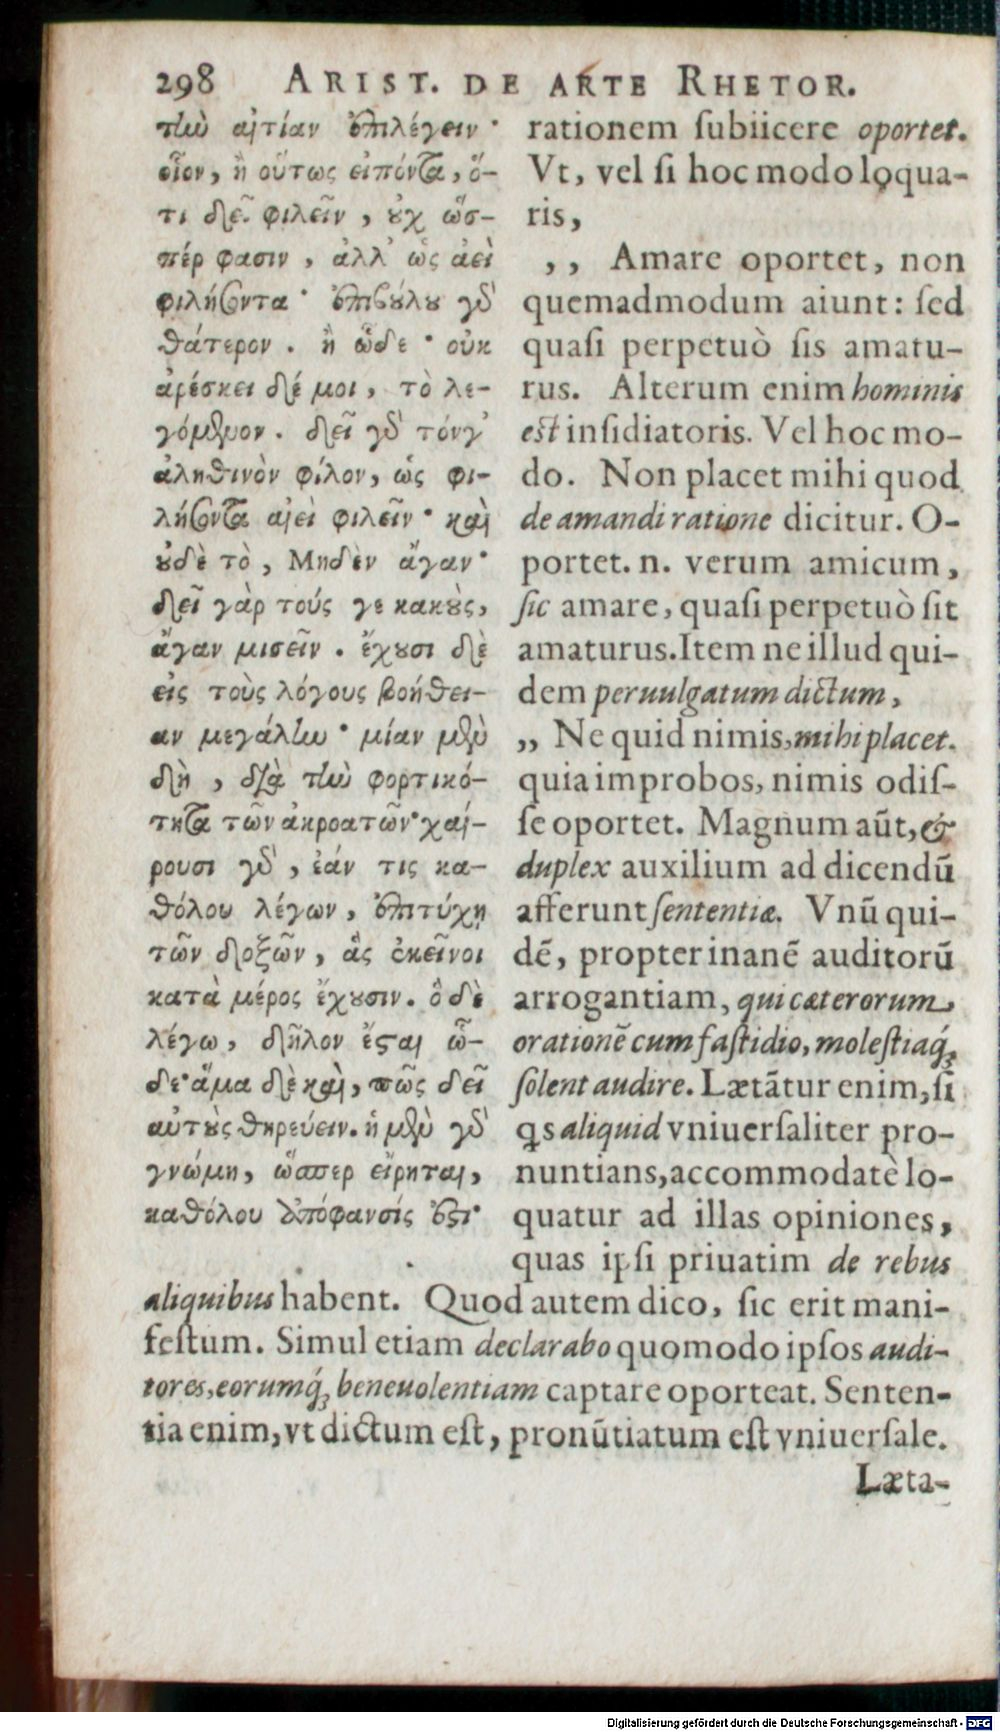 298 ARIST. DE ARTE RHETOR.
τὴν αἰτίαν ἐπιλέγειν·
οἷον, ἢ οὕτως εἰπόντα, ὅ-
τι δεῖ φιλεῖν, οὐχ ὥσ-
πέρ φασιν, ἀλλ' ὡς ἀεὶ
φιλήσοντα· ἐπιβούλου γὰρ
θάτερον. ἢ ὧδε· οὐκ
ἀρέσκει δέ μοι, τὸ λε-
γόμενον. δεῖ γὰρ τόνγ'
ἀληθινὸν φίλον, ὡς φι-
λήσοντα αἰεὶ φιλεῖν· καὶ
οὐδὲ τὸ, Μηδὲν ἄγαν·
δεῖ γὰρ τούς γε κακοὺς,
ἄγαν μισεῖν. ἔχουσι δὲ
εἰς τοὺς λόγους βοήθει-
αν μεγάλην· μίαν μὲν
δὴ, διὰ τὴν φορτικό-
τητα τῶν ἀκροατῶν· χαί-
ρουσι γὰρ, ἐάν τις κα-
θόλου λέγων, ἐπιτύχῃ
τῶν δοξῶν, ἃς ἐκεῖνοι
κατὰ μέρος ἔχουσιν. ὃ δὲ
λέγω, δῆλον ἔσται ὧ-
δε· ἅμα δὲ καὶ, πῶς δεῖ
αὐτοὺς θηρεύειν. ἡ μὲν γὰρ
γνώμη, ὥσπερ εἴρηται,
καθόλου ἀπόφανσίς ἐστι·
rationem subiicere oportet.
Vt, vel si hoc modo loqua-
ris,
,, Amare oportet, non
quemadmodum aiunt: sed
quasi perpetuò sis amatu-
rus. Alterum enim hominis
est insidiatoris. Vel hoc mo-
do. Non placet mihi quod
de amandi ratione dicitur. O-
portet. n. verum amicum,
sic amare, quasi perpetuò sit
amaturus. Item ne illud qui-
dem peruulgatum dictum,
,, Ne quid nimis, mihi placet.
quia improbos, nimis odis-
se oportet. Magnum aũt, &
duplex auxilium ad dicendũ
afferunt sententiæ. Vnũ qui-
dẽ, propter inanẽ auditorũ
arrogantiam, qui cæterorum
orationẽ cum fastidio, molestiaq́;
solent audire. Lætãtur enim, si
qs aliquid vniuersaliter pro-
nuntians, accommodatè lo-
quatur ad illas opiniones,
quas ipsi priuatim de rebus
aliquibus habent. Quod autem dico, sic erit mani-
festum. Simul etiam declarabo quomodo ipsos audi-
tores, eorumq́; beneuolentiam captare oporteat. Senten-
tia enim, vt dictum est, pronũtiatum est vniuersale.
Læta-
Digitalisierung gefördert durch die Deutsche Forschungsgemeinschaft - DFG